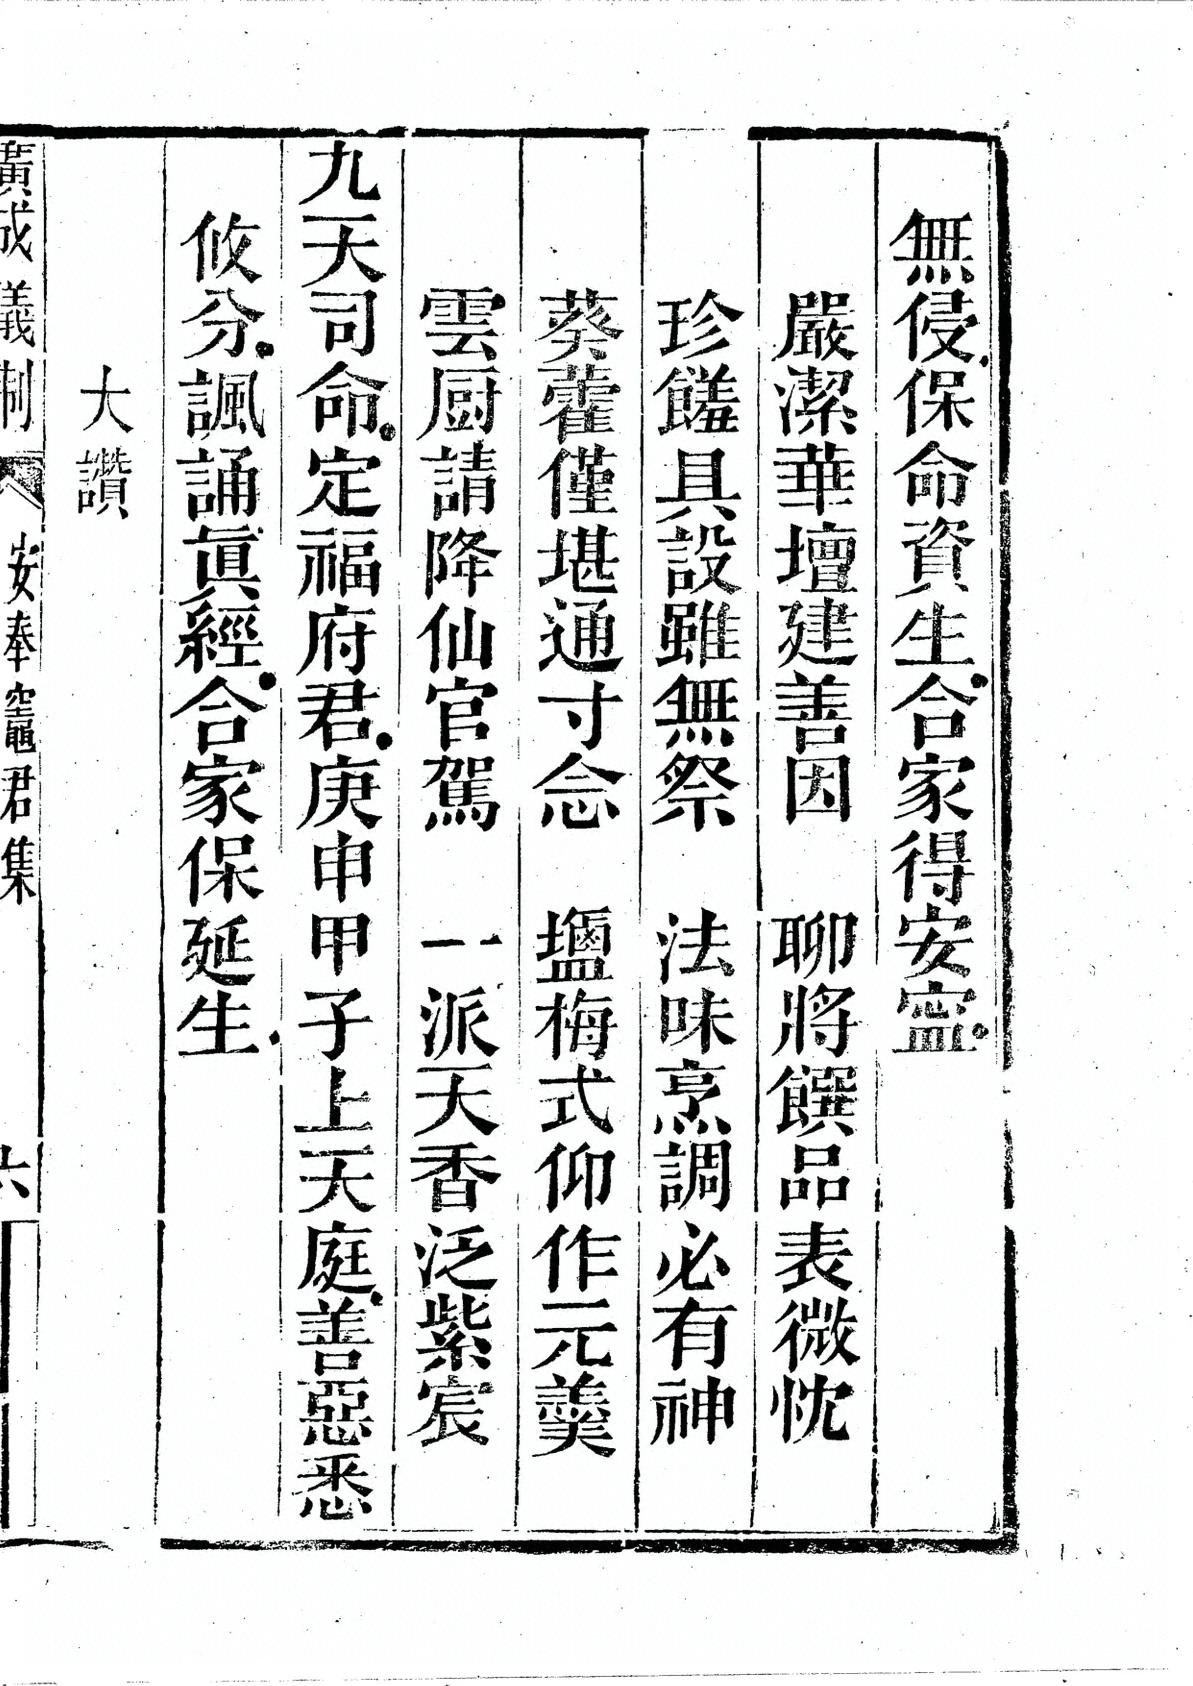 無侵保命資生合家得安寍
嚴潔華壇建善因　聊將饌品表微忱
珍饈具設雖無祭　法味烹調必有神
葵藿僅堪通寸念　塩梅式仰作元羹
雲厨請降仙官駕　一派天香泛紫宸
九天司命定福府君庚申甲子上天庭善惡悉
攸分諷誦眞經合家保延生
大讚
廣成儀制　安奉竈君集　六